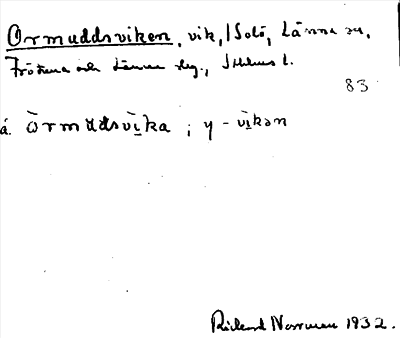 Ormuddsviken, vik, I Solö, Länna sn,
Frötuna och Länna skg., Sthlms l.
83
á. òrmuddsvìka ; y - vìkən
Rickard Norrman 1932.